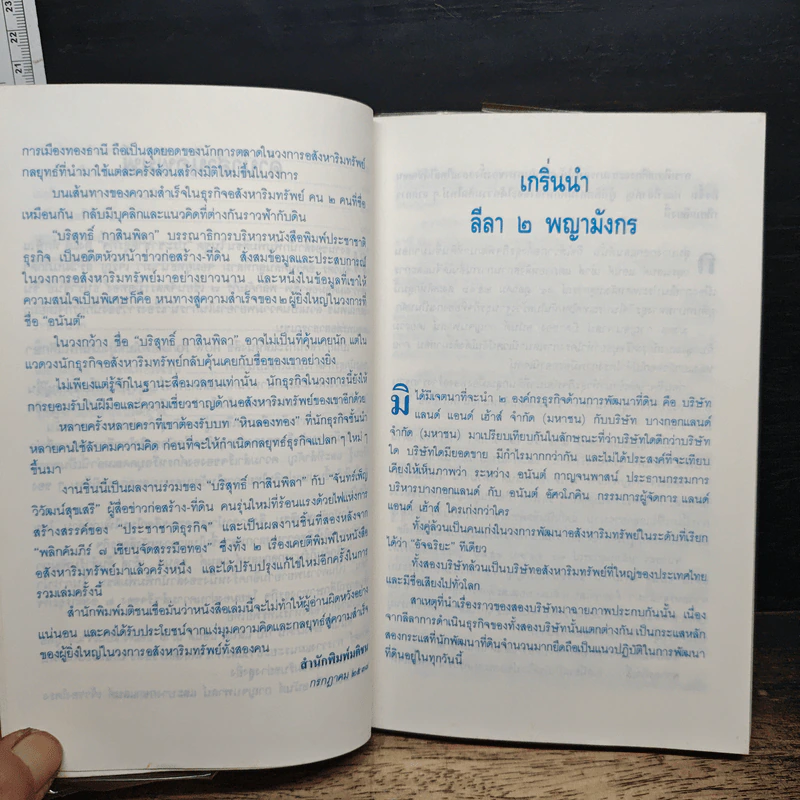 23
22
21
การเมืองทองธานี ถือเป็นสุดยอดของนักการตลาดในวงการอสังหาริมทรัพย์
กลยุทธ์ที่นำมาใช้แต่ละครั้งล้วนสร้างมิติใหม่ขึ้นในวงการ
บนเส้นทางของความสำเร็จในธุรกิจอสังหาริมทรัพย์ คน ๒ คนที่ชื่อ
เหมือนกัน กลับมีบุคลิกและแนวคิดที่ต่างกันราวฟ้ากับดิน
"บริสุทธิ์ กาสินพิลา" บรรณาธิการบริหารหนังสือพิมพ์ประชาชาติ
ธุรกิจ เป็นอดีตหัวหน้าข่าวก่อสร้าง-ที่ดิน สั่งสมข้อมูลและประสบการณ์
ในวงการอสังหาริมทรัพย์มาอย่างยาวนาน และหนึ่งในข้อมูลที่เขาให้
ความสนใจเป็นพิเศษก็คือ หนทางสู่ความสำเร็จของ ๒ ผู้ยิ่งใหญ่ในวงการที่
ชื่อ "อนันต์"
ในวงกว้าง ชื่อ "บริสุทธิ์ กาสินพิลา" อาจไม่เป็นที่คุ้นเคยนัก แต่ใน
แวดวงนักธุรกิจอสังหาริมทรัพย์กลับคุ้นเคยกับชื่อของเขาอย่างยิ่ง
ไม่เพียงแต่รู้จักในฐานะสื่อมวลชนเท่านั้น นักธุรกิจในวงการนี้ยังให้
การยอมรับในฝีมือและความเชี่ยวชาญด้านอสังหาริมทรัพย์ของเขาอีกด้วย
หลายครั้งหลายคราที่เขาต้องรับบท "หินลองทอง" ที่นักธุรกิจชั้นนำ
หลายคนใช้ลับคมความคิด ก่อนที่จะให้กำเนิดกลยุทธ์ธุรกิจแปลก ๆ ใหม่ ๆ
ขึ้นมา
งานชิ้นนี้เป็นผลงานร่วมของ "บริสุทธิ์ กาสินพิลา" กับ "จันทร์เพ็ญ
วิวัฒน์สุขเสรี" ผู้สื่อข่าวก่อสร้าง-ที่ดิน คนรุ่นใหม่ที่ร้อนแรงด้วยไฟแห่งการ
สร้างสรรค์ของ "ประชาชาติธุรกิจ" และเป็นผลงานชิ้นที่สองหลังจาก
"พลิกคัมภีร์ ๗ เซียนจัดสรรมือทอง" ซึ่งทั้ง ๒ เรื่องเคยตีพิมพ์ในหนังสือ
อสังหาริมทรัพย์มาแล้วครั้งหนึ่ง และได้ปรับปรุงแก้ไขใหม่อีกครั้งในการ
รวมเล่มครั้งนี้
สำนักพิมพ์มติชนเชื่อมั่นว่าหนังสือเล่มนี้จะไม่ทำให้ผู้อ่านผิดหวังอย่าง
แน่นอน และคงได้รับประโยชน์จากแง่มุมความคิดและกลยุทธ์สู่ความสำเร็จ
ของผู้ยิ่งใหญ่ในวงการอสังหาริมทรัพย์ทั้งสองคน
สำนักพิมพ์มติชน
กรกฎาคม
เกริ่นนำ
ลีลา ๒ พญามังกร
มิได้มีเจตนาที่จะนำ ๒ องค์กรธุรกิจด้านการพัฒนาที่ดิน คือ บริษัท
แลนด์ แอนด์ เฮ้าส์ จำกัด (มหาชน) กับบริษัท บางกอกแลนด์
จำกัด (มหาชน) มาเปรียบเทียบกันในลักษณะที่ว่าบริษัทใดดีกว่าบริษัท
ใด บริษัทใดมียอดขาย มีกำไรมากกว่ากัน และไม่ได้ประสงค์ที่จะเทียบ
เคียงให้เห็นภาพว่า ระหว่าง อนันต์ กาญจนพาสน์ ประธานกรรมการ
บริหารบางกอกแลนด์ กับ อนันต์ อัศวโภคิน กรรมการผู้จัดการ แลนด์
แอนด์ เฮ้าส์ ใครเก่งกว่าใคร
ทั้งคู่ล้วนเป็นคนเก่งในวงการพัฒนาอสังหาริมทรัพย์ในระดับที่เรียก
ได้ว่า "อัจฉริยะ" ทีเดียว
ทั้งสองบริษัทล้วนเป็นบริษัทอสังหาริมทรัพย์ที่ใหญ่ของประเทศไทย
และมีชื่อเสียงไปทั่วโลก
สาเหตุที่นำเรื่องราวของสองบริษัทมาฉายภาพประกบกันนั้น เนื่อง
จากลีลาการดำเนินธุรกิจของทั้งสองบริษัทนั้นแตกต่างกัน เป็นกระแสหลัก
สองกระแสที่นักพัฒนาที่ดินจำนวนมากยึดถือเป็นแนวปฏิบัติในการพัฒนา
ที่ดินอยู่ในทุกวันนี้